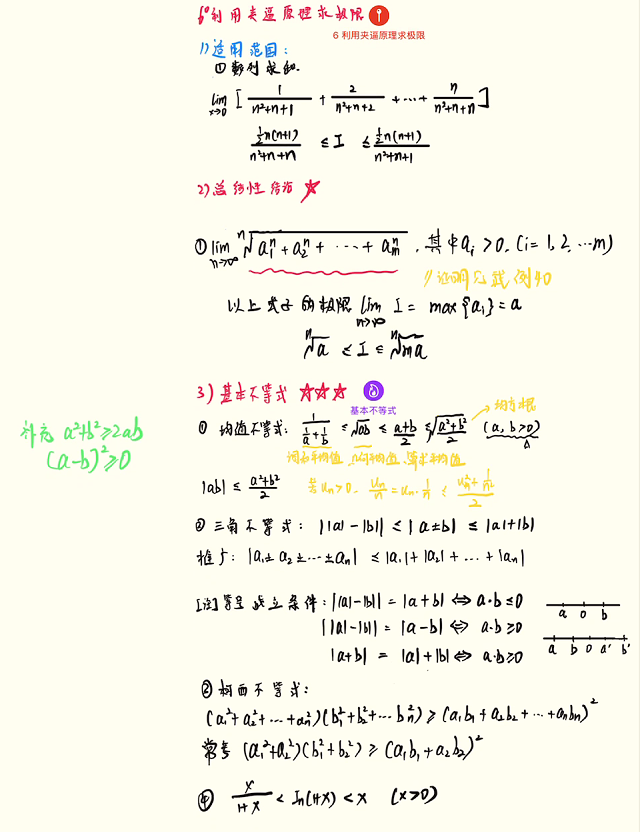 6° 利用夹逼原理求极限
6 利用夹逼原理求极限
1) 适用范围:
① 数列求和.
lim x→0 [ 1/(n²+n+1) + 2/(n²+n+2) + ... + n/(n²+n+n) ]
½n(n+1)/(n²+n+n) ≤ I ≤ ½n(n+1)/(n²+n+1)
2) 总结性结论 ☆
① lim n→∞ ⁿ√(a₁ⁿ + a₂ⁿ + ... + aₘⁿ) , 其中 aᵢ > 0. (i = 1, 2, ...m)
// 证明见 例40
以上式子的极限 lim n→∞ I = max{aᵢ} = a
ⁿ√a ≤ I ≤ ⁿ√ma
3) 基本不等式 ☆☆☆
基本不等式
① 均值不等式: 1/(1/a + 1/b) ≤ √ab ≤ (a+b)/2 ≤ √((a²+b²)/2) (a, b > 0)
均方根
调和平均值, 几何均值, 算术平均值
补充 a²+b² ≥ 2ab
(a-b)² ≥ 0
|ab| ≤ (a²+b²)/2 若 uₙ > 0. uₙ/n = uₙ · 1/n ≤ (uₙ² + 1/n²)/2
② 三角不等式: ||a| - |b|| ≤ |a ± b| ≤ |a| + |b|
推广: |a₁ ± a₂ ± ... ± aₙ| ≤ |a₁| + |a₂| + ... + |aₙ|
[注] 等号成立条件: ||a| - |b|| = |a + b| ⇔ a·b ≤ 0
a 0 b
||a| - |b|| = |a - b| ⇔ a·b ≥ 0
a b 0 a' b'
|a + b| = |a| + |b| ⇔ a·b ≥ 0
③ 柯西不等式:
(a₁² + a₂² + ... + aₙ²)(b₁² + b₂² + ... bₙ²) ≥ (a₁b₁ + a₂b₂ + ... + aₙbₙ)²
常考 (a₁² + a₂²)(b₁² + b₂²) ≥ (a₁b₁ + a₂b₂)²
④ x/(1+x) < ln(1+x) < x (x > 0)